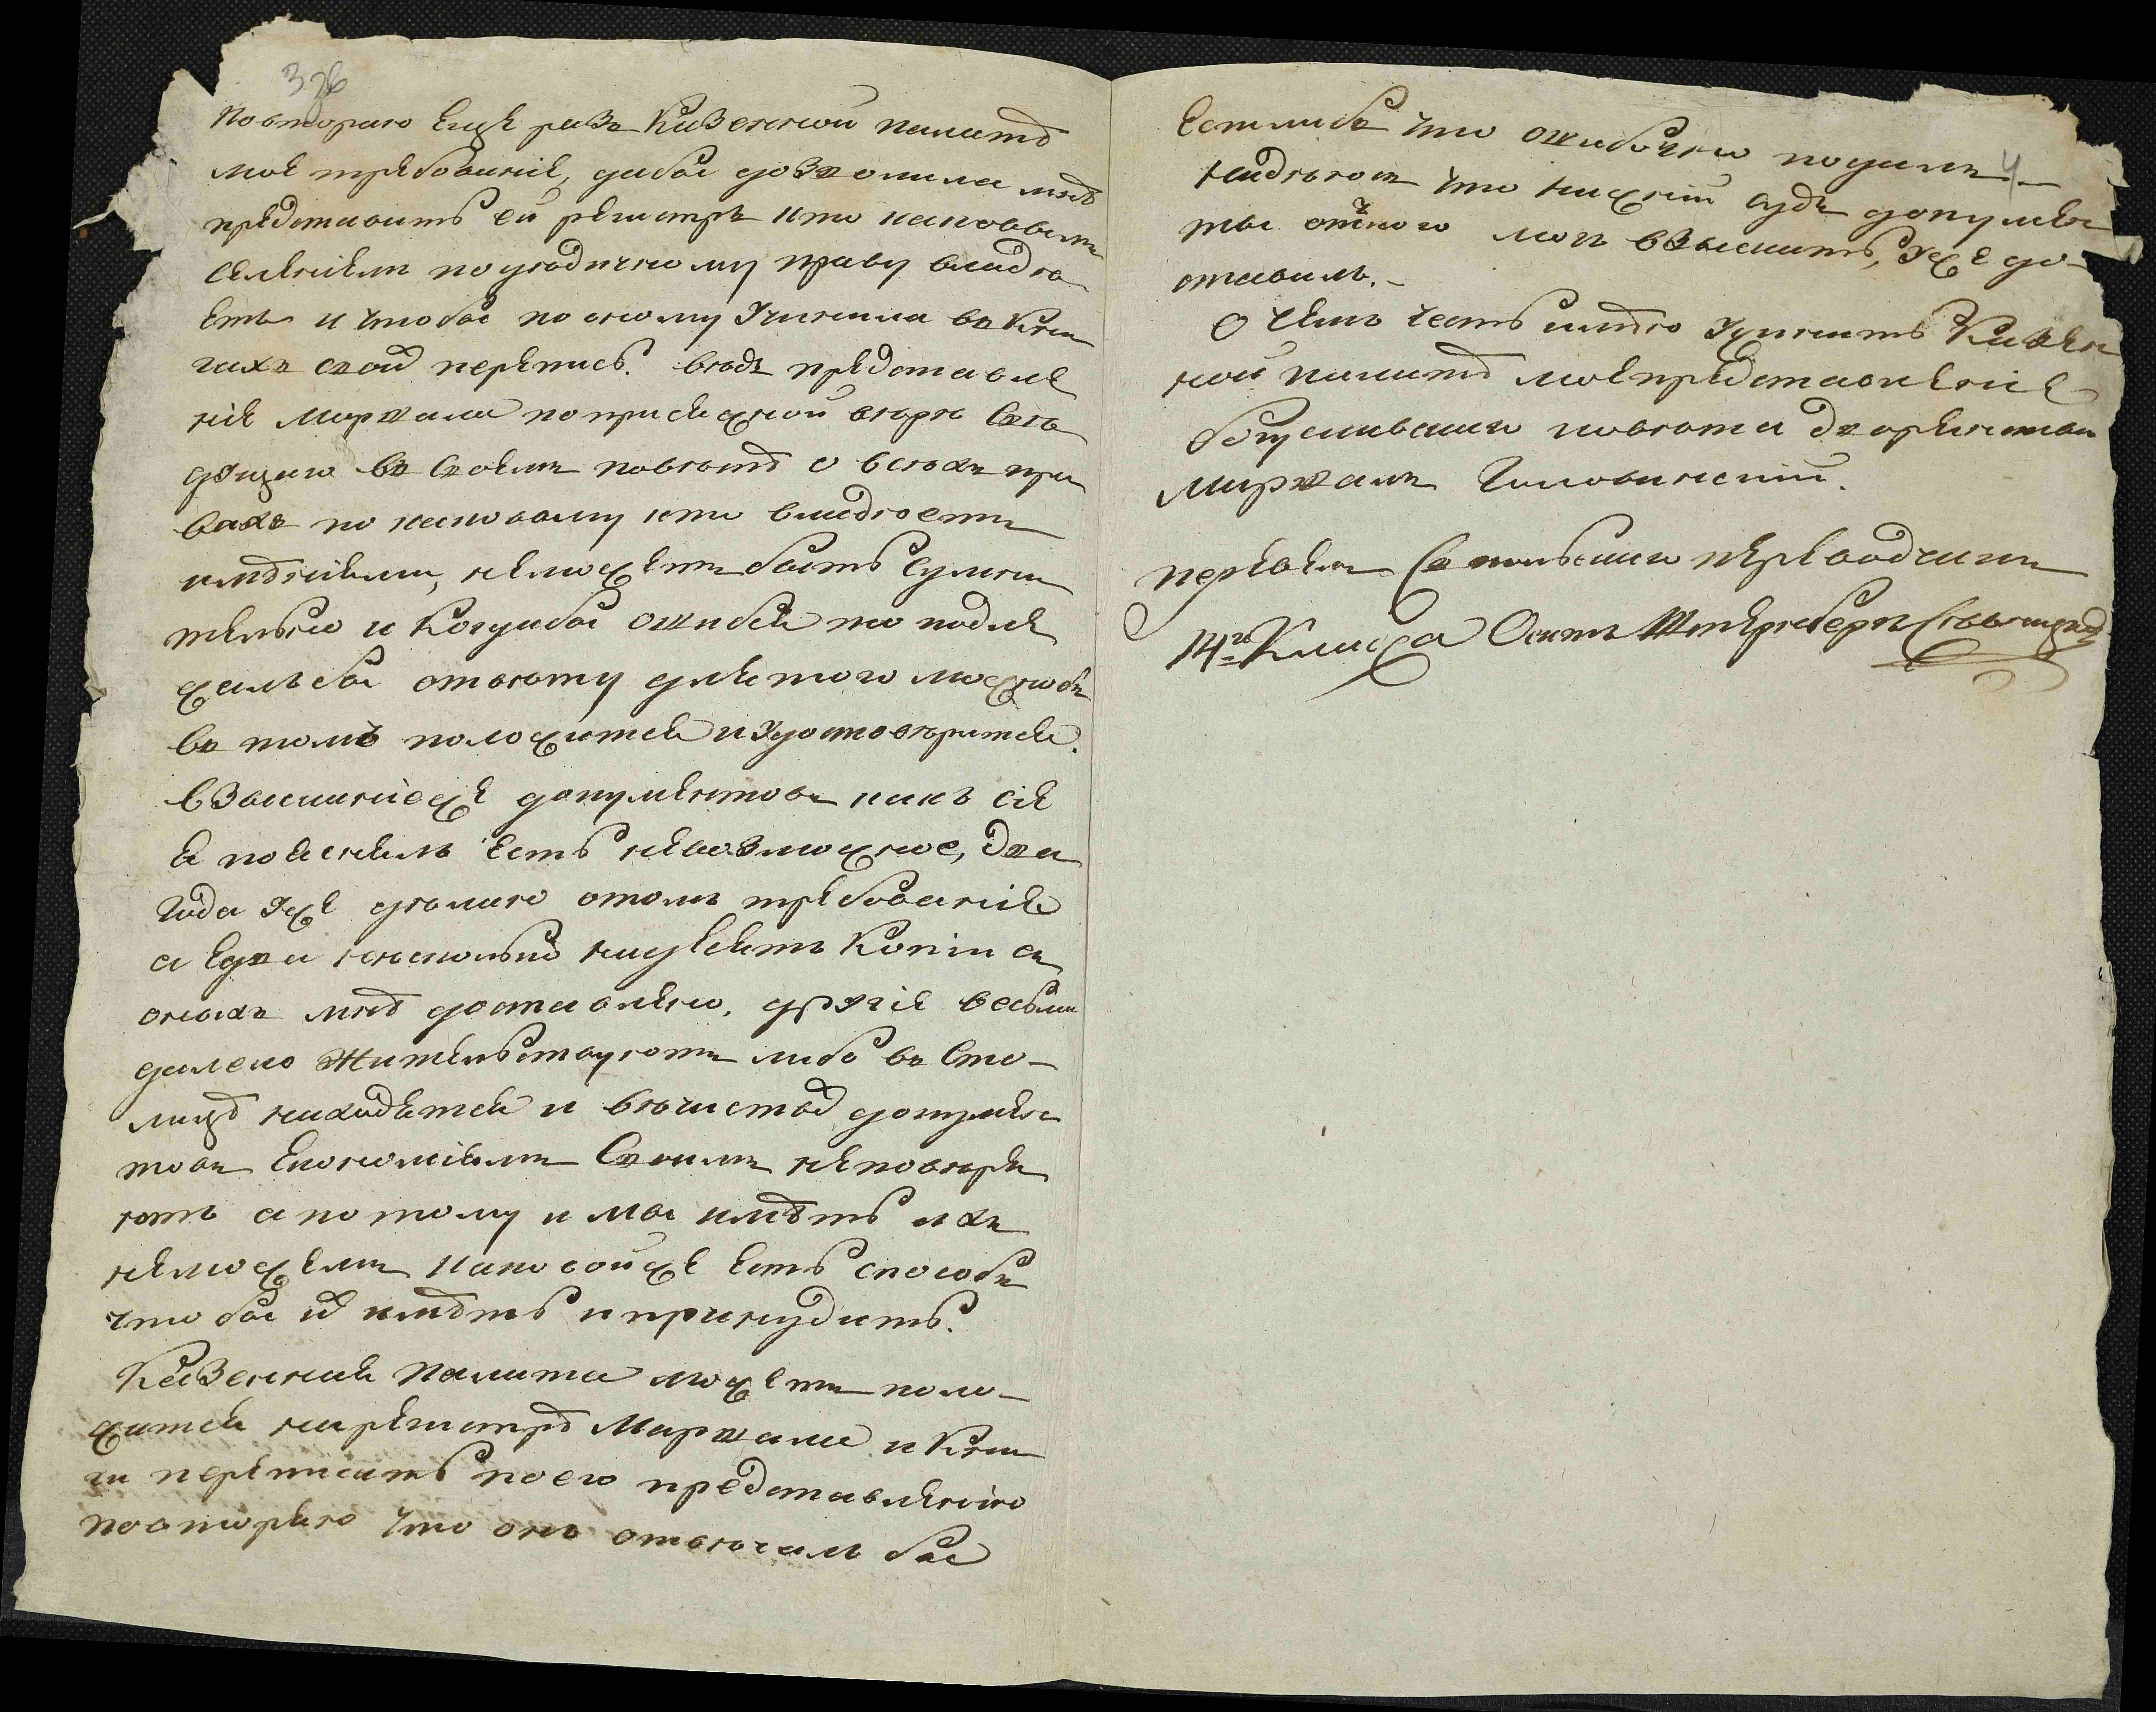 3об
Повторяю еще разъ Казенной палатѣ
мое требованіе, дабы дозволила мнѣ
представить ей регистръ кто каковымъ
селеніемъ по угодичному праву владѣ
етъ и чтобы по оному Учинила въ Кни
гахъ своѣ перепись. вѣдь представле
ніе Маршала по присяжной вѣрѣ Свѣ
дущаго въ своемъ повѣтѣ о всѣхъ пра
вахъ по каковому кто владѣетъ
имѣніемъ, неможетъ быть Сумни
тельно и Когдабы ошибся то подле
жалъбы отвѣту для того можнобъ
въ томъ положится и Удостовѣрится.
взысканіеже документовъ какъ сіе
я пояснилъ есть невозможное, Два
года уже дѣлаю отомъ требованіе
а Едва нѣсколько надѣетъ Копіи съ
оныхъ мнѣ доставлено, другіе весьма
далеко Жительствуютъ либо въ Сто-
лицѣ находятся и вѣчистоѣ докумен
товъ Економіямъ Своимъ неповѣря
ютъ а по тому и мы имѣть ихъ
неможемъ каковойже есть способъ
что бы ихъ имѣть и принудить.
Казенная Палата можетъ поло-
жится нарегистрѣ Маршала и Кни
ги переписать по его представленію
повторяю что онъ отвѣчалъ бы
Естлибъ что ошибочно подалъ 4
надѣюсь что нижній судъ докумен
ты отъкого могъ взыскать, уже до-
ставилъ.-
О чемъ честь имѣю Учинить Казен
ной палатѣ мое представленіе
богуславскаго повѣта Дворянства
Маршалъ Головинскій.
перевелъ Съ польскаго переводчикъ
14го Класса Осипъ Штернберъ